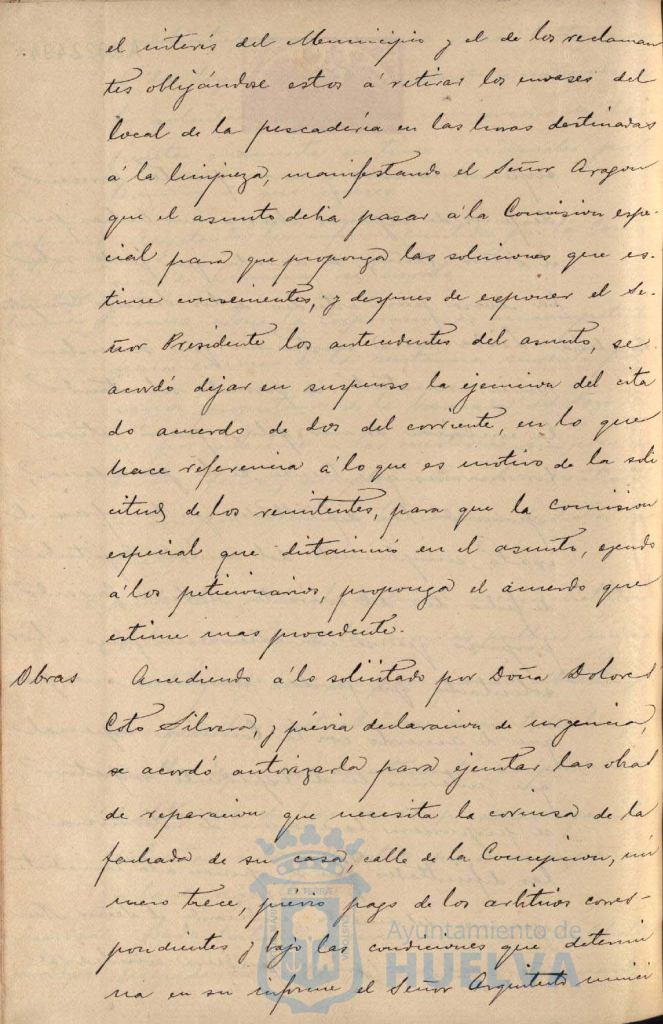 el interés del Municipio y el de los reclaman
tes obligándose estos á retirar los envases del
local de la pescadería en las horas destinadas
á la limpieza, manifestando el Señor Aragon
que el asunto debia pasar á la Comision espe-
cial para que proponga las soluciones que es-
time convenientes; y despues de exponer el Se-
ñor Presidente los antecedentes del asunto, se
acordó dejar en suspenso la ejecucion del cita
do acuerdo de dos del corriente, en lo que
hace referencia á lo que es motivo de la soli
citud de los remitentes, para que la Comision
especial que dictaminó en el asunto, oyendo
á los peticionarios, proponga el acuerdo que
estime mas procedente.
Obras
Accediendo á lo solicitado por Doña Dolores
Coto Silvera, y prévia declaracion de urgencia,
se acordó autorizarla para ejecutar las obras
de reparacion que necesita la cornisa de la
fachada de su casa, calle de la Concepcion, nú
mero trece, prévio pago de los arbitrios corres-
pondientes y bajo las condiciones que determi
na en su informe el Señor Arquitecto munici
Ayuntamiento de
HUELVA